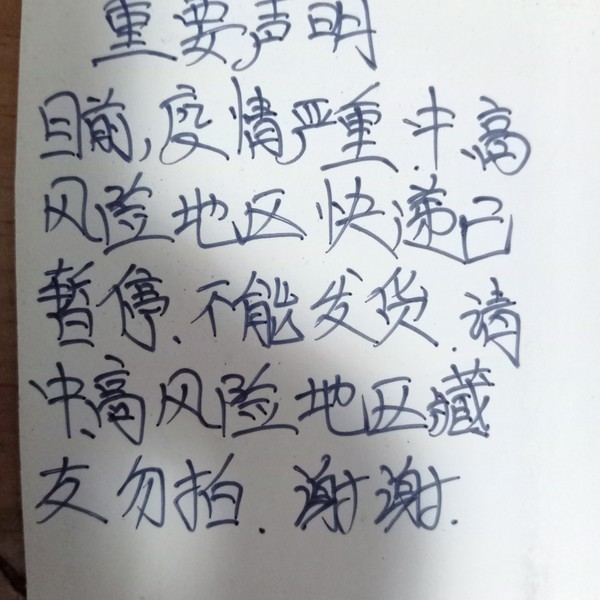 重要声明
目前,疫情严重.中高
风险地区快递已
暂停.不能发货.请
中高风险地区藏
友勿拍.谢谢.